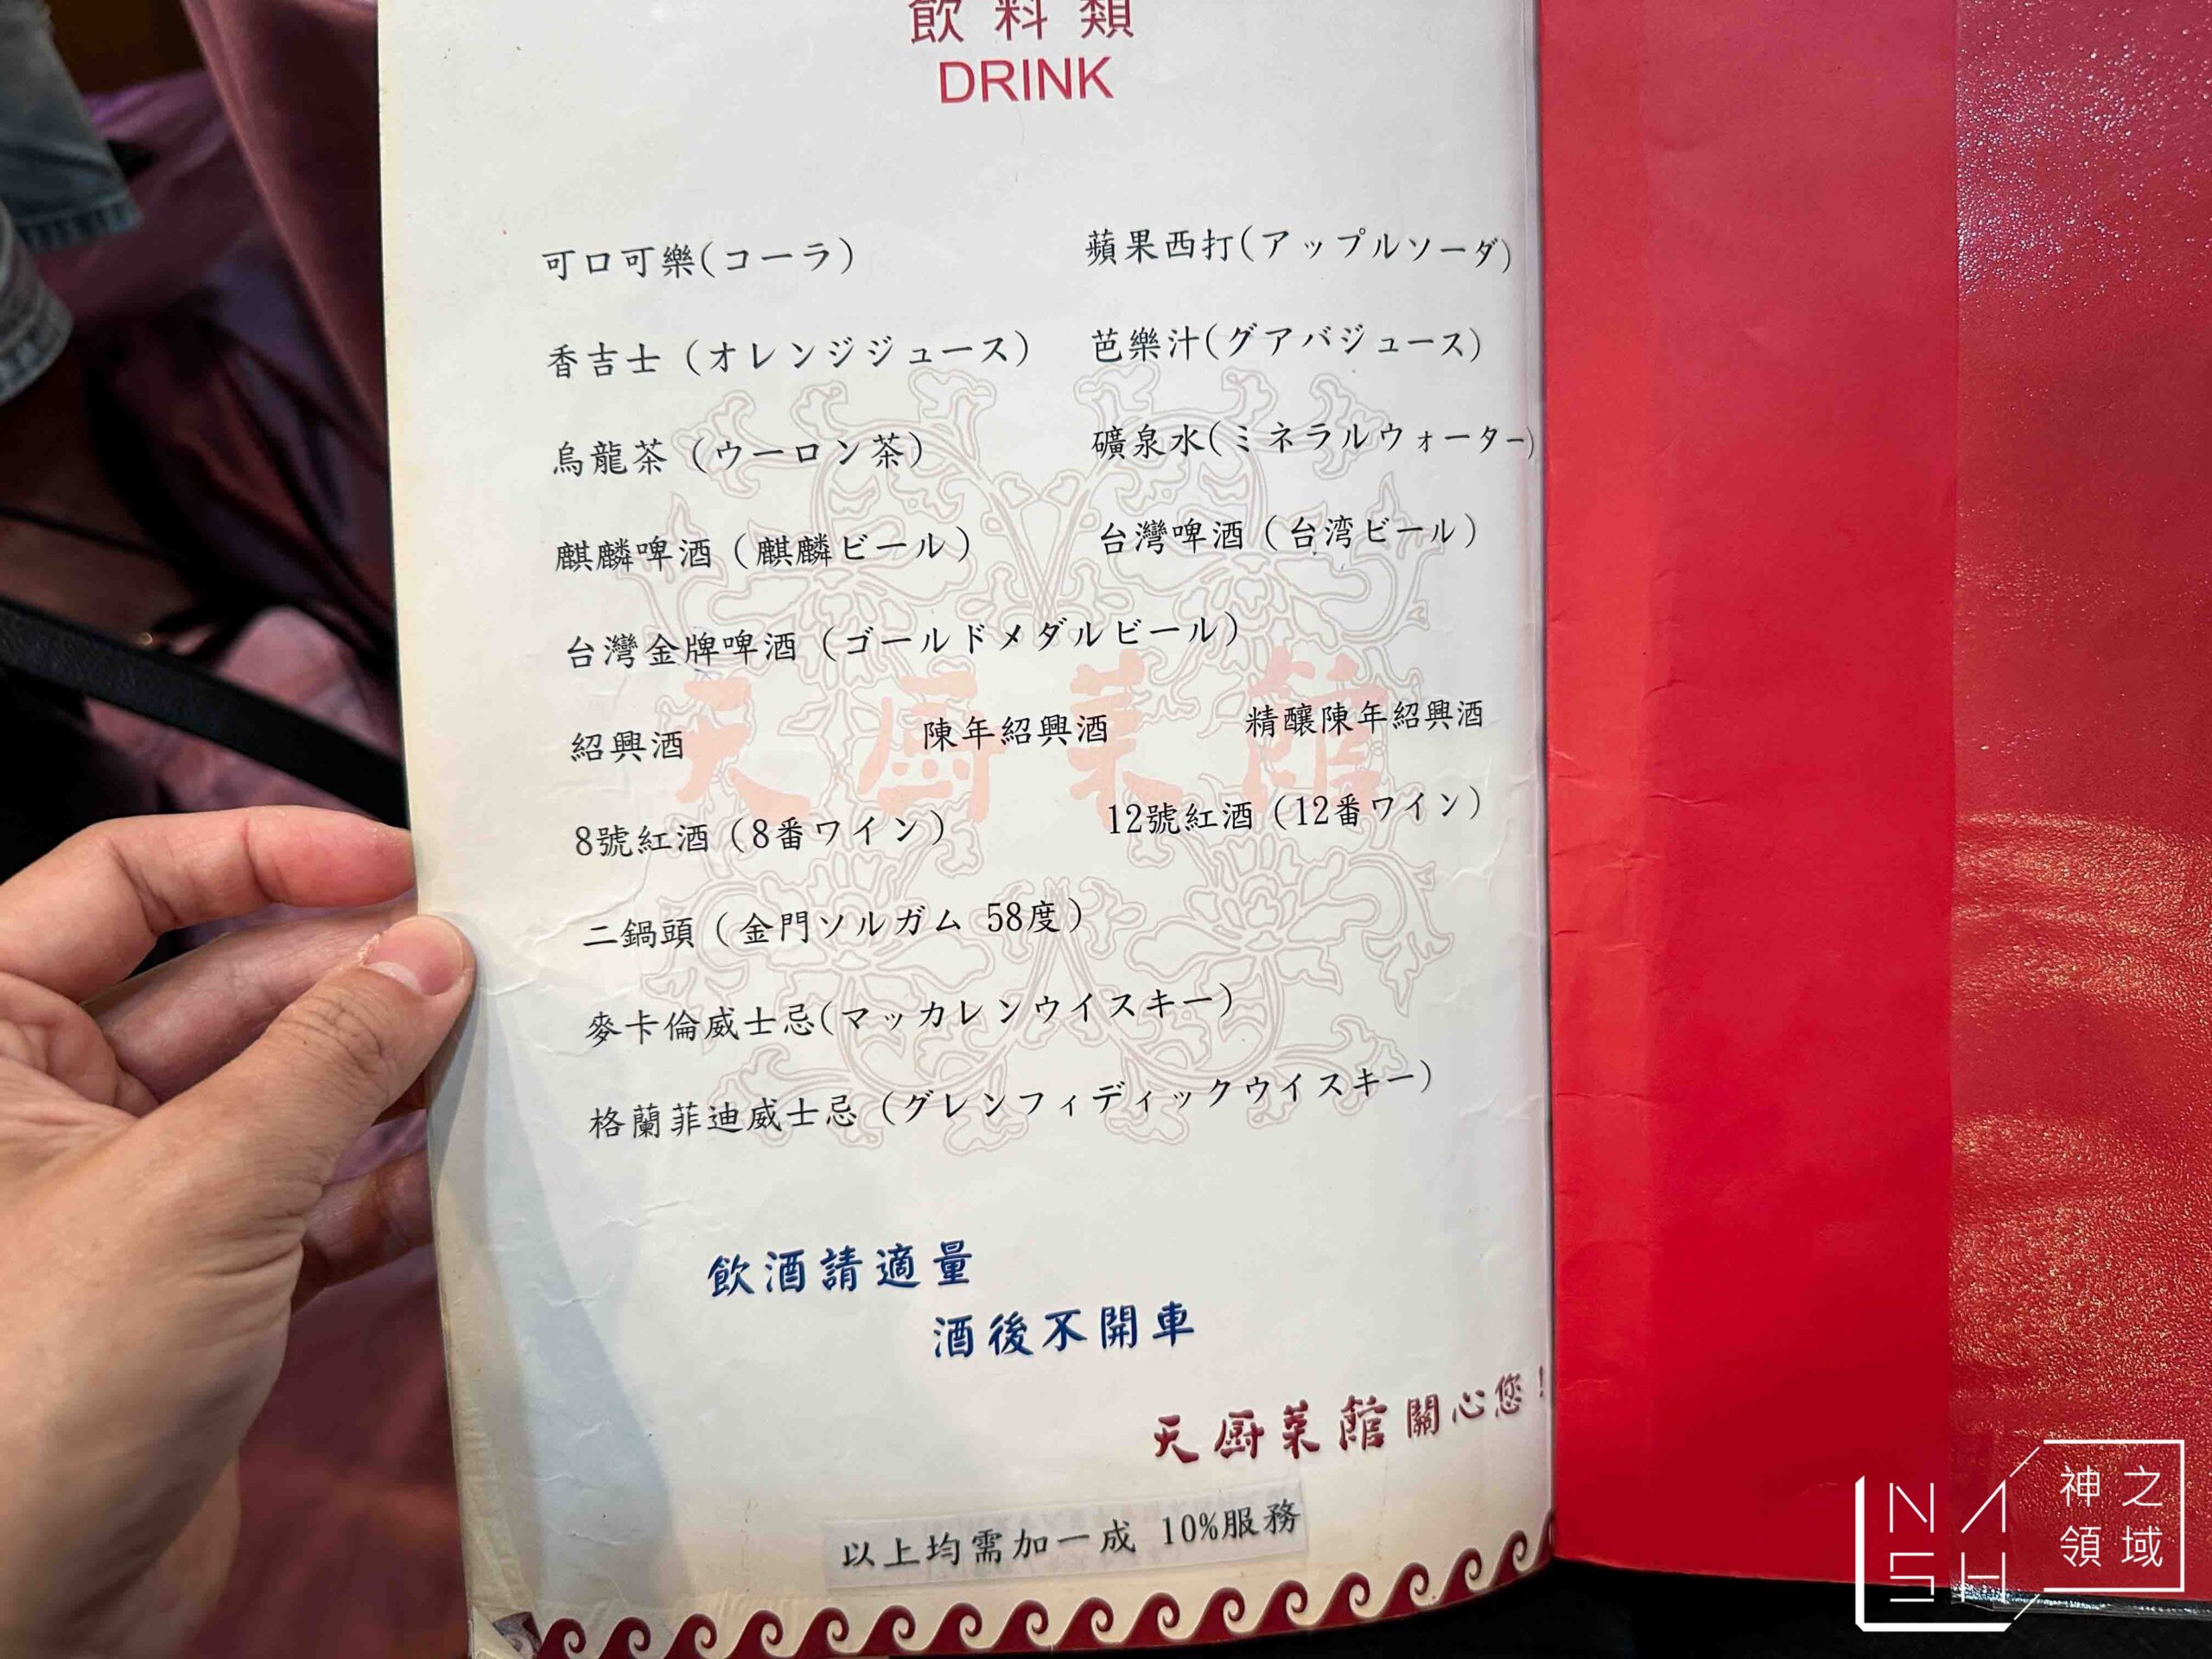 飲料類
DRINK
可口可樂(コーラ) 蘋果西打(アップルソーダ)
香吉士 (オレンジジュース) 芭樂汁(グアバジュース)
烏龍茶 (ウーロン茶) 礦泉水(ミネラルウォーター)
麒麟啤酒 (麒麟ビール) 台灣啤酒 (台湾ビール)
台灣金牌啤酒 (ゴールドメダルビール)
天厨菜館
紹興酒 陳年紹興酒 精釀陳年紹興酒
8號紅酒 (8番ワイン) 12號紅酒 (12番ワイン)
二鍋頭 (金門ソルガム 58度)
麥卡倫威士忌(マッカレンウイスキー)
格蘭菲迪威士忌 (グレンフィディックウイスキー)
飲酒請適量
酒後不開車
天厨菜館關心您!
以上均需加一成 10%服務
NASH 神之領域